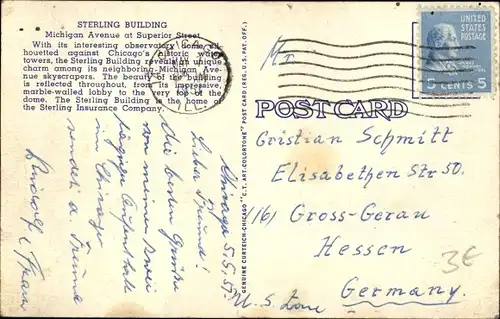 STERLING BUILDING
Michigan Avenue at Superior Street
With its interesting observatory dome, silhouetted against Chicago's historic water
towers, the Sterling Building reveals an unique
charm among its neighboring Michigan Avenue skyscrapers. The beauty of the building
is reflected throughout, from its impressive,
marble-walled lobby to the very top of the
dome. The Sterling Building is the home of
the Sterling Insurance Company.
Chicago 5.5.51.
Liebe Freunde!
Die besten Grüße
von meinem zwei
tägigen Aufenthalt
in Chicago
sendet a. Freund
Rudolf
GENUINE CURTEICH-CHICAGO "C.T. ART-COLORTONE" POST CARD (REG. U.S. PAT. OFF.)
UNITED
STATES
POSTAGE
5 CENTS 5
CHICAGO
ILL.
POST CARD
Mr.
Cristian Schmitt
Elisabethen Str 50.
(16) Gross-Gerau
Hessen
U.S. Zone Germany.
3€